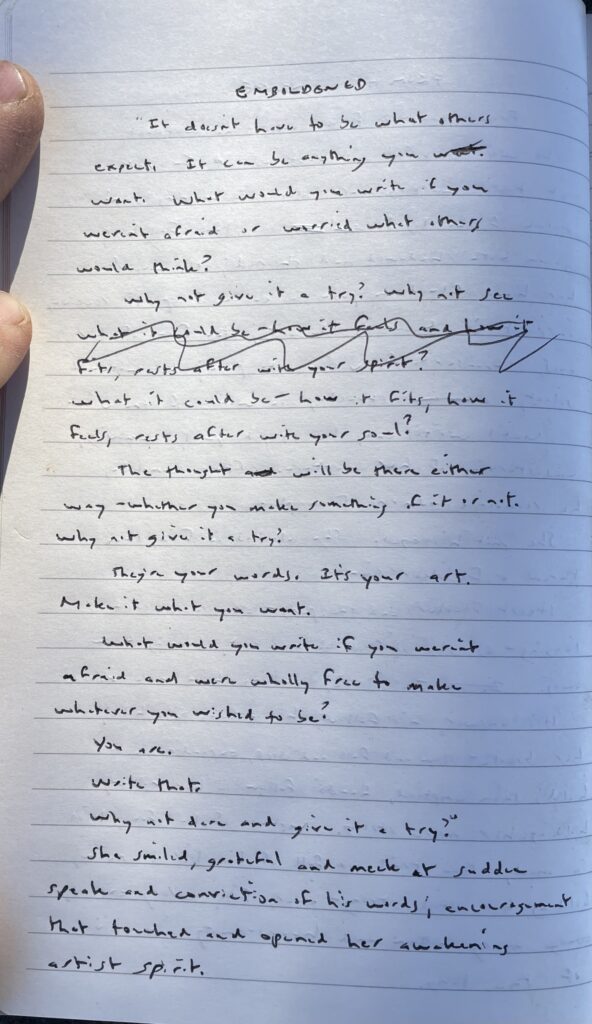 EMBOLDENED
"It doesn't have to be what others
expect. It can be anything you
want. What would you write if you
weren't afraid or worried what others
would think?
Why not give it a try? Why not see
what it could be – how it feels and how it
fits, rests after with your spirit?
What it could be – how it fits, how it
feels, rests after with your soul?
The thought will be there either
way – whether you make something of it or not.
Why not give it a try?
They're your words. It's your art.
Make it what you want.
What would you write if you weren't
afraid and were wholly free to make
whatever you wished to be?
You are.
Write that.
Why not dare and give it a try?"
She smiled, grateful and meek at sudden
speak and conviction of his words; encouragement
that touched and opened her awakening
artist spirit.